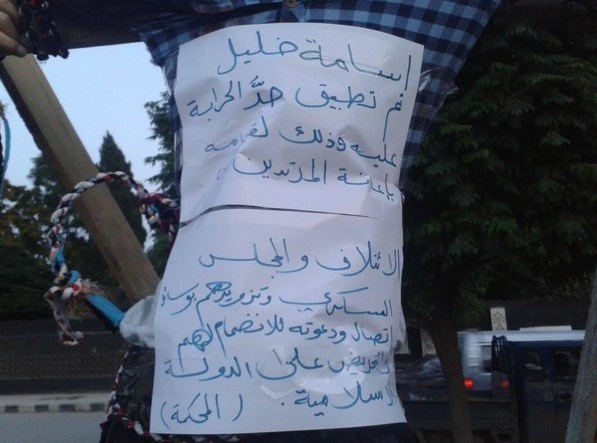 إسامة خليل
تم تطبيق حدَّ الحرابة
عليه وذلك لقيامه
بإعانة المرتدين
الائتلاف والمجلس
العسكري وتزويدهم بوسائل
اتصال ودعوته للانضمام لهم
والتحريض على الدولة
الإسلامية. (المحكمة)